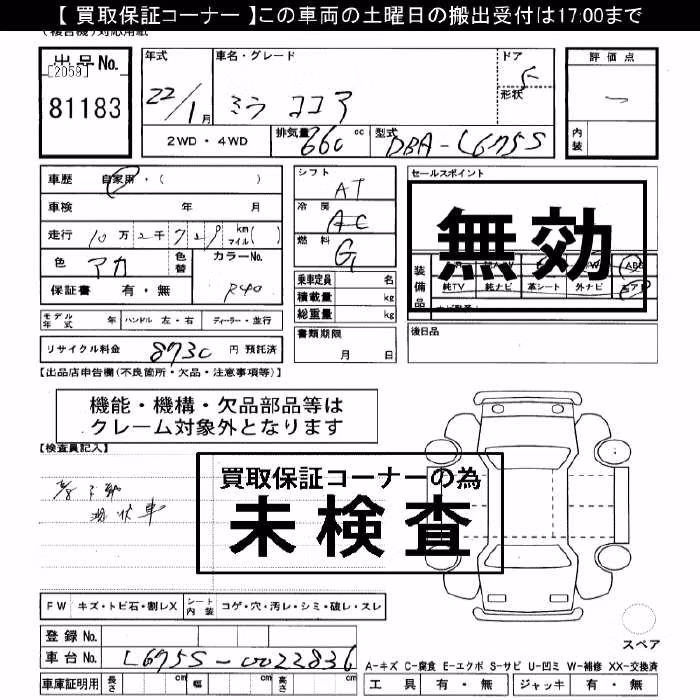 【 買取保証コーナー 】この車両の土曜日の搬出受付は17:00まで
出品No.
[2059]
81183
年式
22/1月
車名・グレード
ミラ ココア
ドア
5
形状
2WD・4WD
排気量
660 cc
型式
DBA-L675S
評価点
内装
車歴 自家用・( )
車検 年 月
走行 10万2千7 km マイル( )
色 アカ 色替
カラーNo.
R40
保証書 有・無
シフト AT
冷房 AC
燃料 G
乗車定員 名
積載量 kg
総重量 kg
書類期限
月 日
セールスポイント
無効
装備品
純TV 純ナビ 革シート 外ナビ エアB
ABS
後日品
モデル年式 年 ハンドル 左・右 ディーラー・並行
リサイクル料金 8730 円 預託済
【出品店申告欄(不良箇所・欠品・注意事項等)】
機能・機構・欠品部品等は
クレーム対象外となります
【検査員記入】
現状車
買取保証コーナーの為
未検査
FW キズ・トビ石・割レX シート内装 コゲ・穴・汚レ・シミ・破レ・スレ
スペア
登録No.
車台No. L675S-0022836
A-キズ C-腐食 E-エクボ S-サビ U-凹ミ W-補修 XX-交換済
車庫証明用 長さ cm 幅 cm 高さ cm
工具 有・無 ジャッキ 有・無